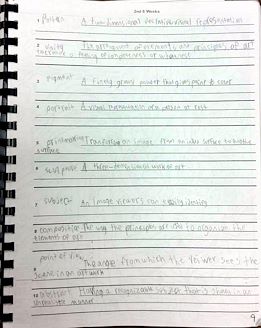 2nd 6 Weeks
1 Pattern A two-dimensional decorative visual repetition
2 Unity The arrangement of elements and principles of art
to create a feeling of completeness or wholeness
3 pigment A finely ground powder that gives paint its color
4 portrait A visual representation of a person at rest
5 printmaking Transferring an image from an inked surface to another
surface
6 sculpture A three-dimensional work of art
7 subject An image viewers can easily identify
8 composition The way the principles are used to organize the
elements of art
9 point of view The angle from which the viewer sees the
scene in an artwork
10 abstract Having a recognizable subject that is shown in an
unrealistic manner